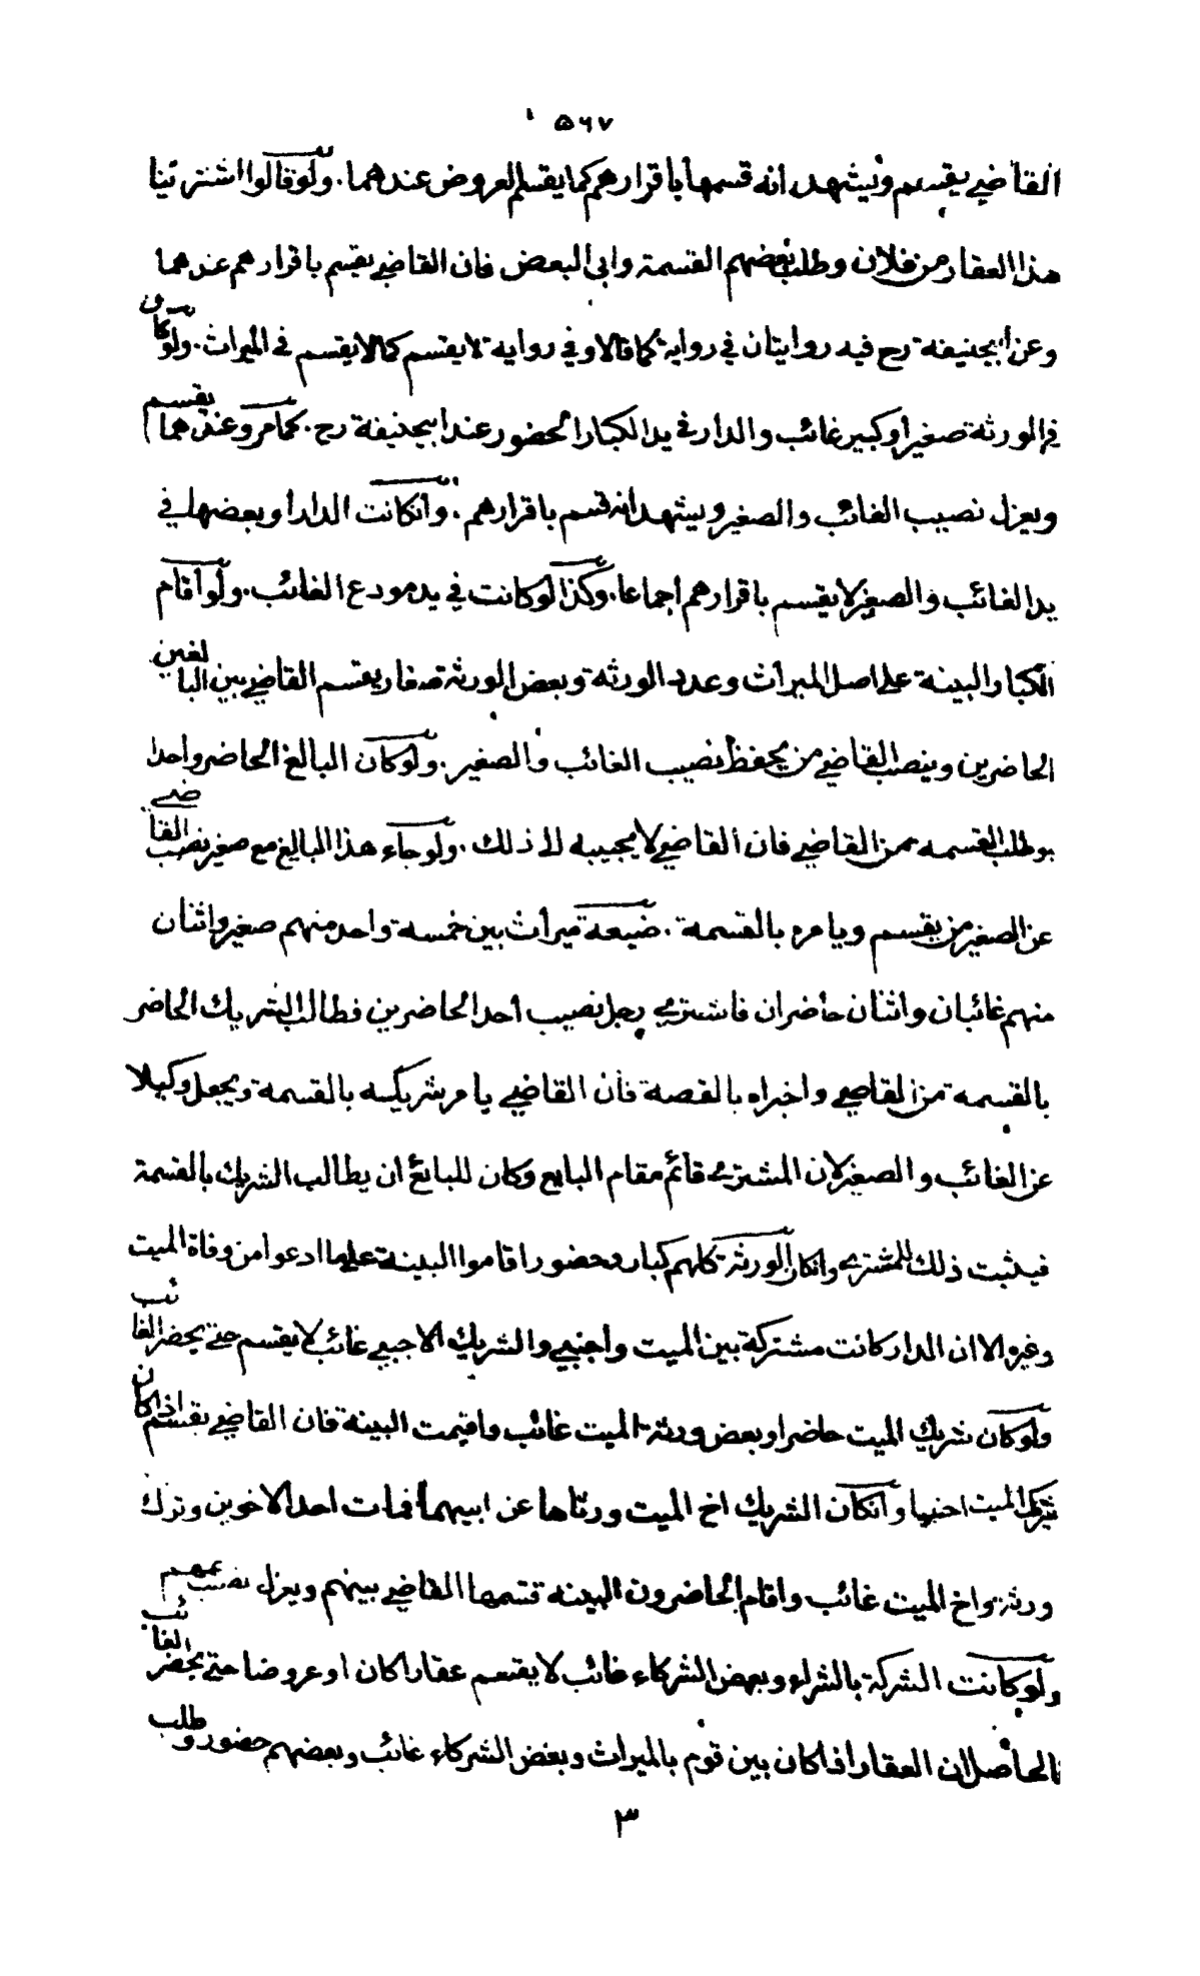 ۵۶۷
القاضي يقسم ويشهد انه قسمها باقرارهم كما يقسم العروض عندهما. ولو قالوا اشترينا
هذا العقار من فلان وطلب بعضهم القسمة وابى البعض فان القاضي يقسم باقرارهم عندهما
وعن ابيحنيفة رح فيه روايتان في رواية كما قالا وفي رواية لا يقسم كما لا يقسم في الميراث. ولو كان
في الورثة صغير او كبير غائب والدار في يد الكبار الحضور عند ابيحنيفة رح. كما مر وعندهما يقسم
ويعزل نصيب الغائب والصغير ويشهد انه قسم باقرارهم. وانكانت الدار او بعضها في
يد الغائب والصغير لا يقسم باقرارهم اجماعا. وكذا لو كانت في يد مودع الغائب. ولو اقام
الكبار البينة على اصل الميراث وعدد الورثة وبعض الورثة صغار يقسم القاضي بين البالغين
الحاضرين وينصب القاضي من يحفظ نصيب الغائب والصغير. ولو كان البالغ الحاضر واحدا
وطلب القسمه من القاضي فان القاضي لا يجيبه الى ذلك. ولو جاء هذا البالغ مع صغير نصب القاضي
عن الصغير من يقسم ويامره بالقسمة. ضيعة ميراث بين خمسة واحد منهم صغير واثنان
منهم غائبان واثنان حاضران فاشترى رجل نصيب احد الحاضرين فطالب الشريك الحاضر
بالقسمة من القاضي واخبراه بالقصة فان القاضي يامر شريكه بالقسمة ويجعل وكيلا
عن الغائب والصغير لان المشتري قائم مقام البايع وكان للبائع ان يطالب الشريك بالقسمة
فيثبت ذلك للمشتري وانكان الورثة كلهم كبار وحضور اقاموا البينة على ما ادعوا من وفاة الميت
وغيره الا ان الدار كانت مشتركة بين الميت واجنبي والشريك الاجنبي غائب لا يقسم حتى يحضر الغائب
ولو كان شريك الميت حاضرا وبعض ورثة الميت غائب واقيمت البينة فان القاضي يقسم اذا كان
شريك الميت اجنبيا وانكان الشريك اخ الميت ورثاها عن ابيهما فمات احد الاخوين وترك
ورثة واخ الميت غائب واقام الحاضرون البينه قسمها القاضي بينهم ويعزل نصيب عمهم
ولو كانت الشركة بالشراء وبعض الشركاء غائب لا يقسم عقارا كان او عروضا حتى يحضر الغائب
فالحاصل ان العقار اذا كان بين قوم بالميراث وبعض الشركاء غائب وبعضهم حضور وطلب
٣